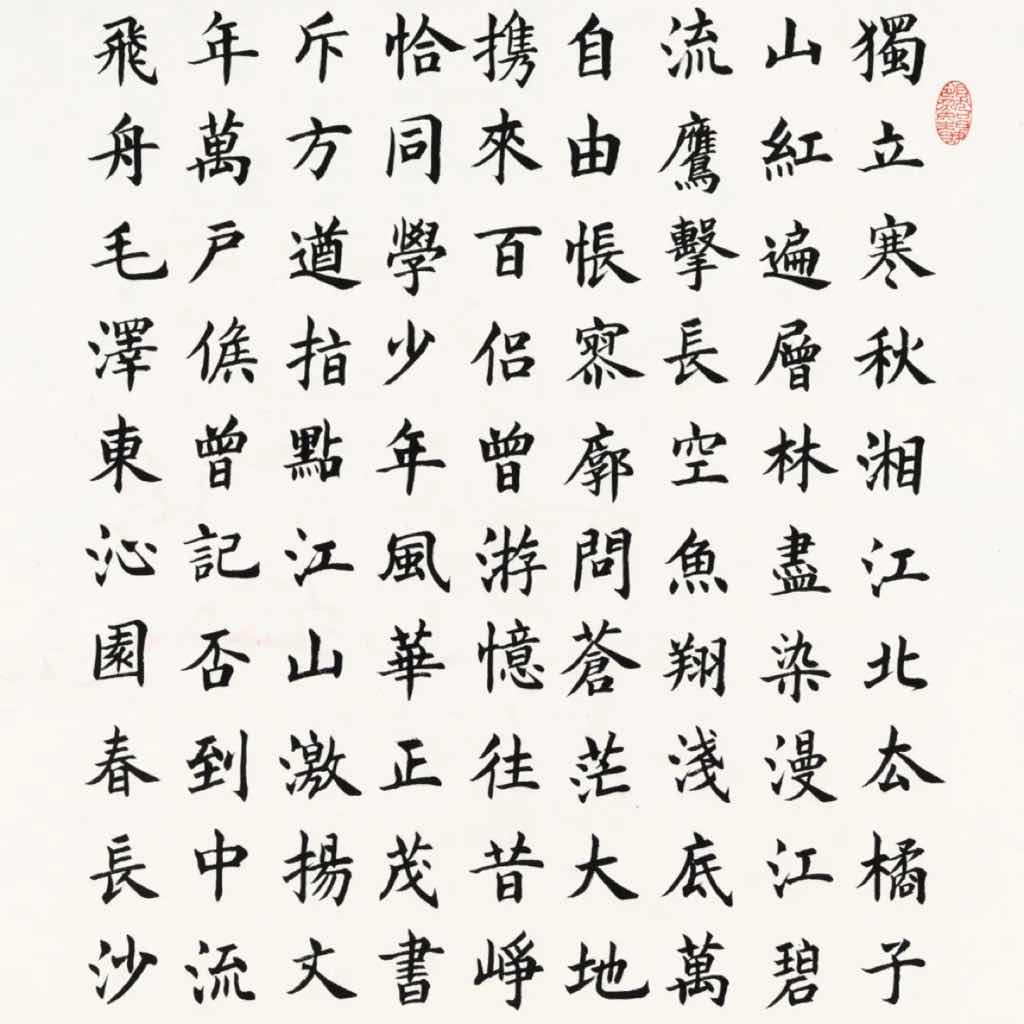 獨立寒秋湘江北去橘子
山紅遍層林盡染漫江碧
流鷹擊長空魚翔淺底萬
自由悵寥廓問蒼茫大地
携來百侣曾游憶往昔崢
恰同學少年風華正茂書
斥方遒指點江山激揚文
年萬户侯曾記否到中流
飛舟毛澤東沁園春長沙